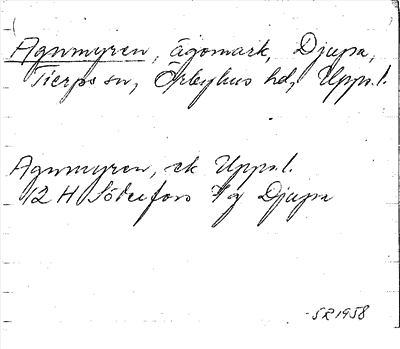 Agnmyren, ägomark, Djupa,
Tierps sn, Örbyhus hd, Upps. l.
Agnmyren, ek Upps. l.
12 H Söderfors Djupa
SR 1958